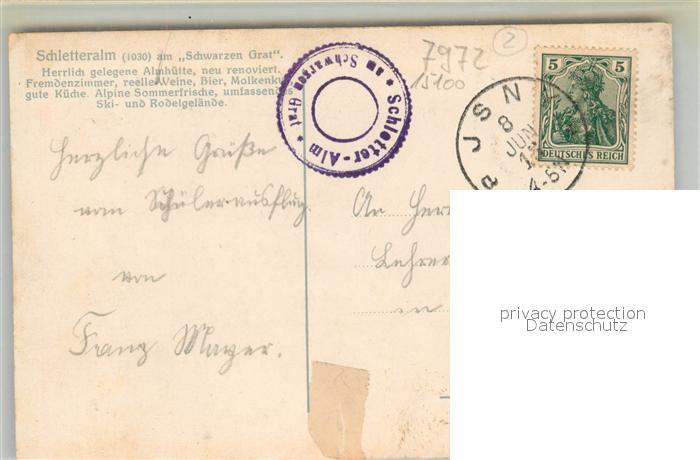 Schletteralm (1030) am „Schwarzen Grat“.
Herrlich gelegene Almhütte, neu renoviert.
Fremdenzimmer, reelle Weine, Bier, Molkenku
gute Küche. Alpine Sommerfrische, umfassendes
Ski- und Rodelgelände.
* Schletter-Alm *
am Schwarzen Grat
7972
15100
2
JSNY
8
JUN
5 5
DEUTSCHES REICH
Herzliche Grüße
vom Schülerausflug.
von
Franz Mayer.
An Herr
Lehrer
in
privacy protection
Datenschutz